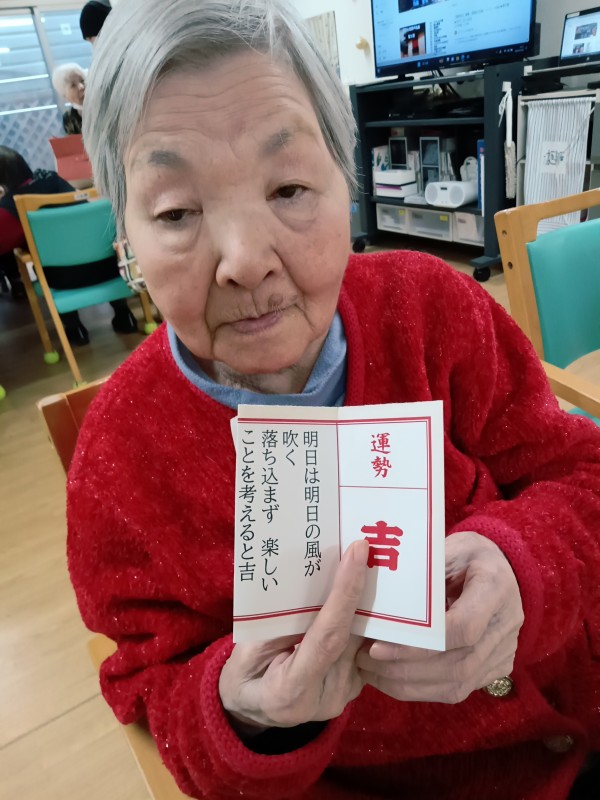 運勢
吉
明日は明日の風が
吹く
落ち込まず 楽しい
ことを考えると吉